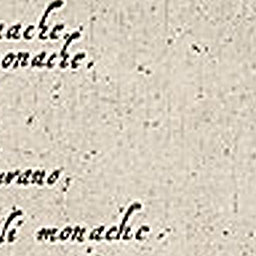 nache.
onache.
urano,
li monache.